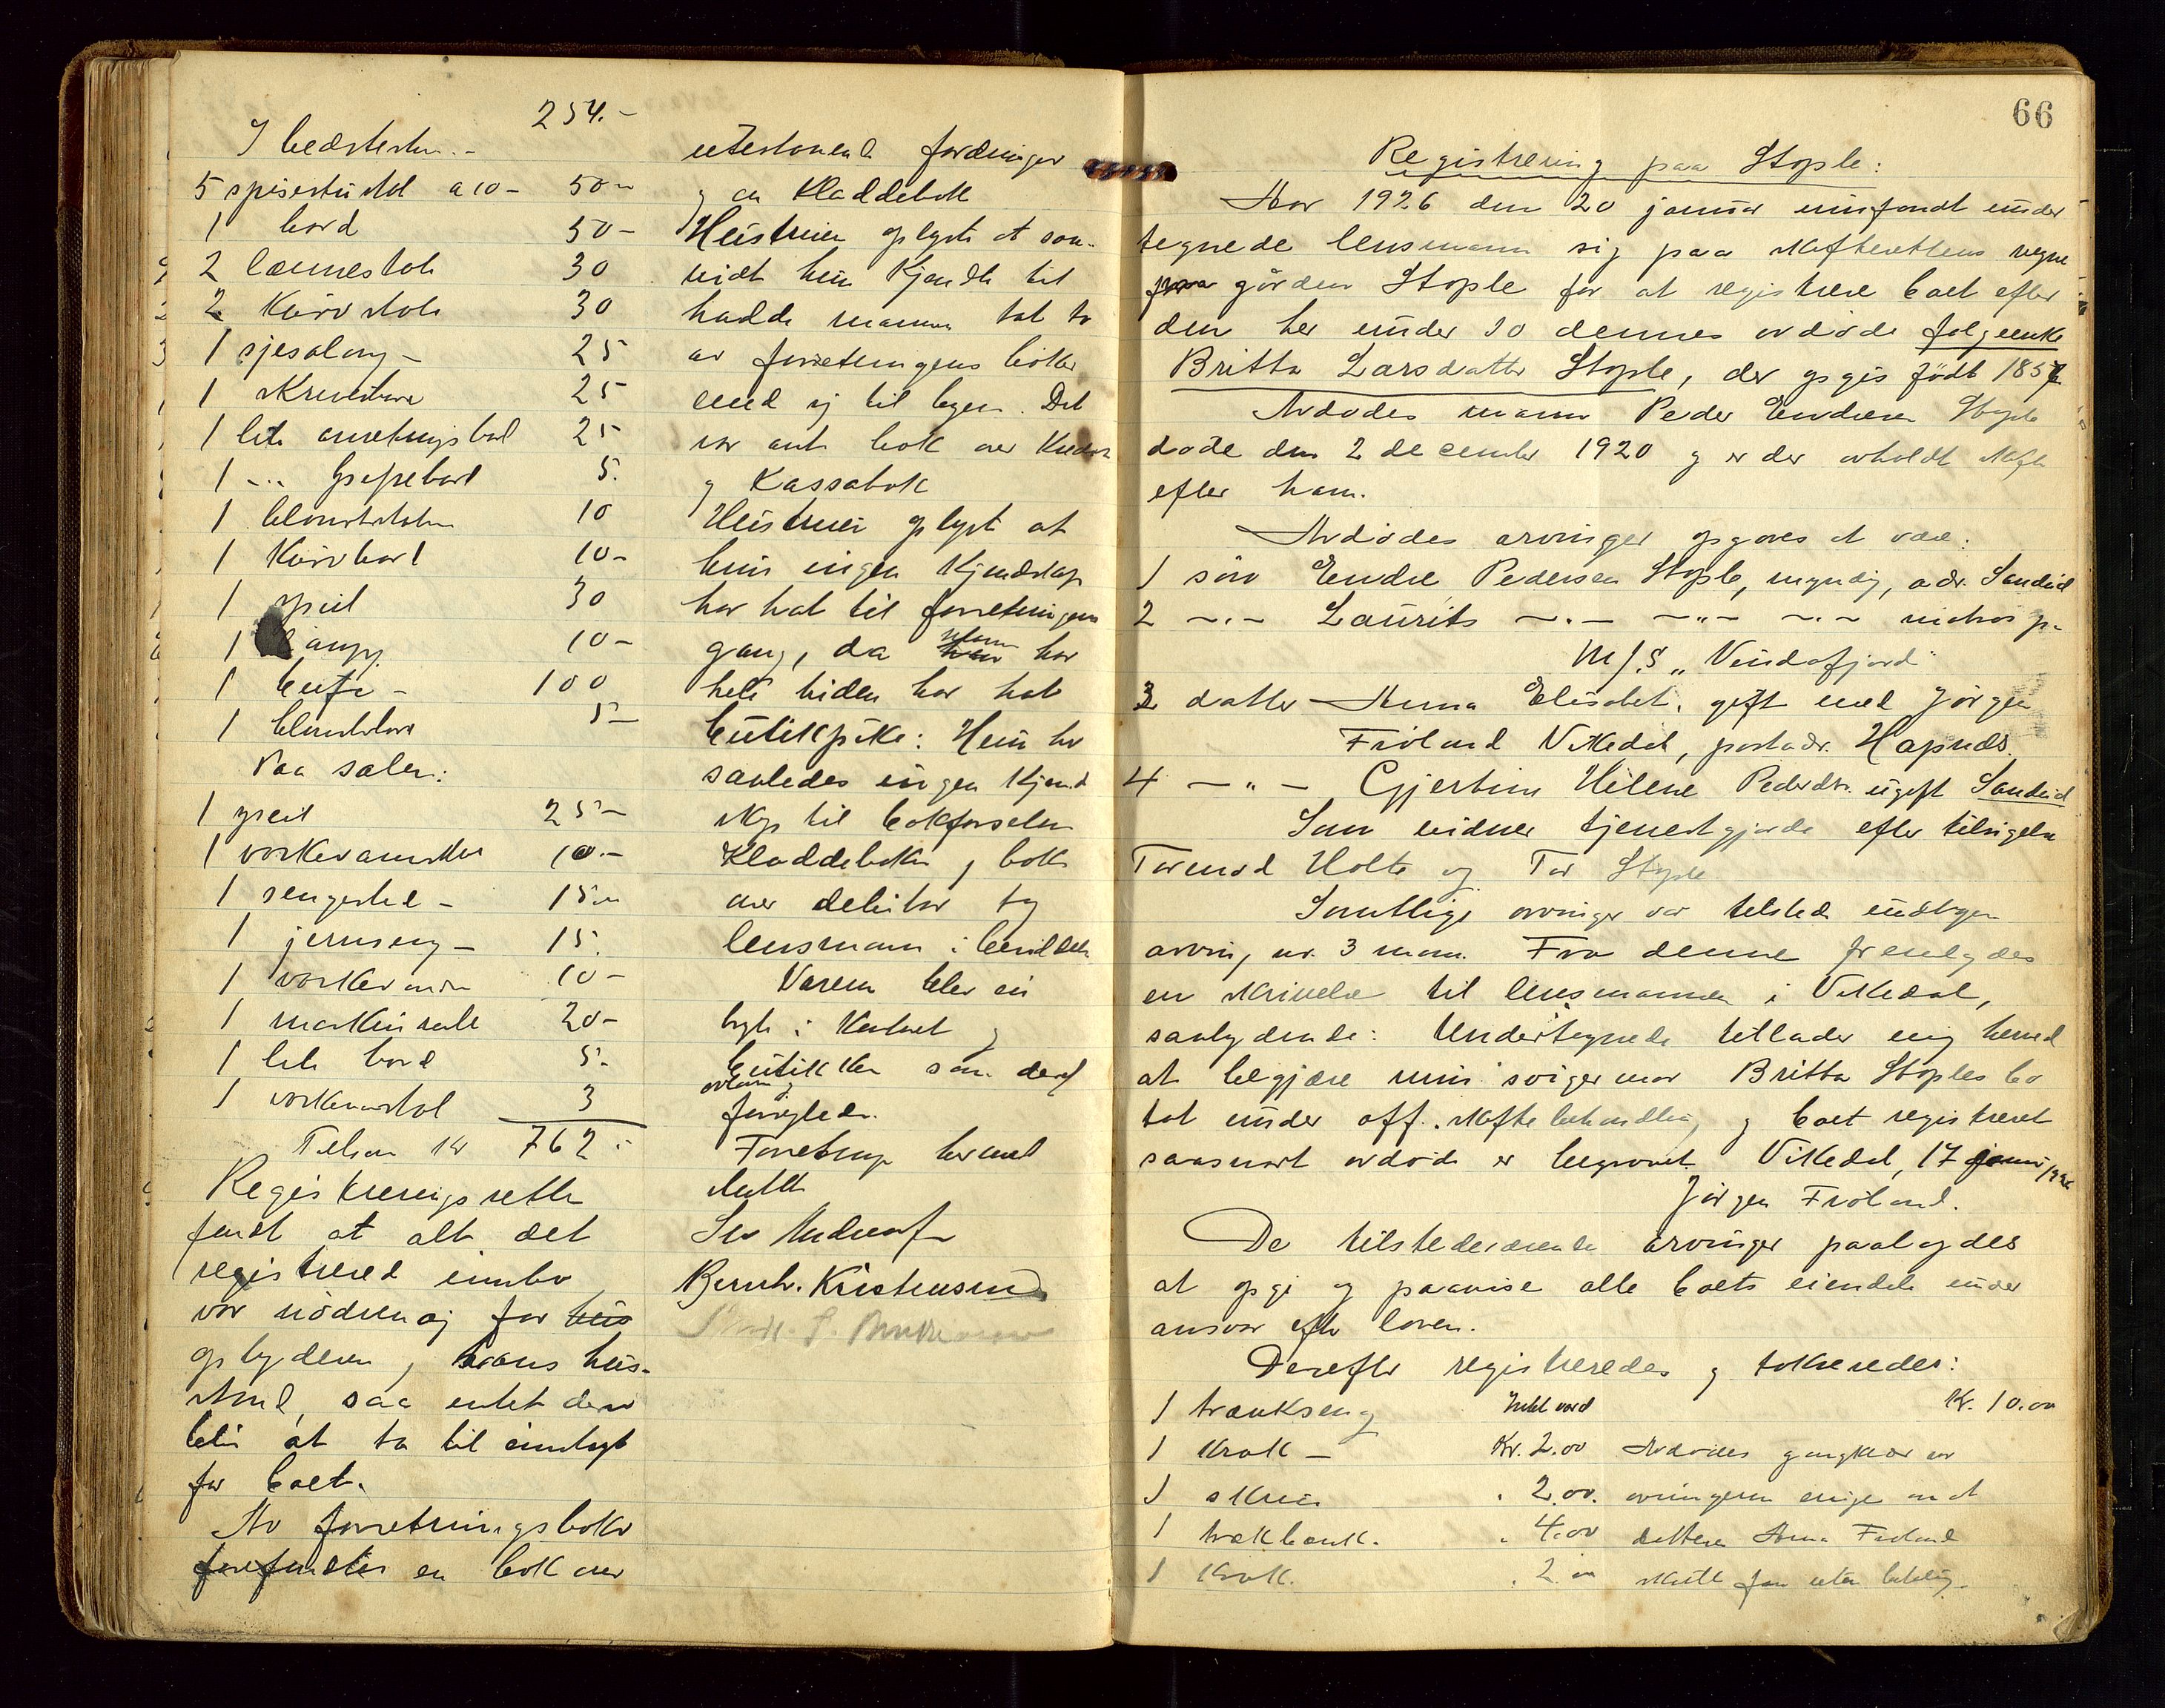 254.-
I bedstestuen.-
5 spisestuestol a 10- 50-
1 bord 50-
2 lænestole 30
2 Kurvstole 30
1 sjeselong - 25
1 skrivebord 25
1 lite anretningsbord 25
1 -"- 5.
1 blomsterbord 10
1 Kurvbord 10-
1 speil 30
1 lampe 10-
1 buffe - 100
1 5-
Paa salen:
1 speil 25-
1 vaskevandsstel 10.-
1 sengested - 15.-
1 jernseng - 15.
1 10-
1 20-
1 lite bord 5.
1 3
Tilsam kr 762.-
Registreringsretten
fandt at alt det
registrered innbo
var nödvendig for hus
opbyderen, hans hus-
stand, saa intet derav
blir at ta til indtægt
for boet.
Av forretningsboker
forefundtes en bok over
utestaaende fordringer
og en Kladdebok
Hustruen oplyste at saa-
vidt hun kjendte til
hadde mannen tat to
av forretningens böker
med sig til byen. Det
var ant. bok over
og Kassabok
Hustruen oplyste at
hun ingen Kjendskap
har hat til forretningens
gang, da han har
hele tiden har hat
butikpike: Hun har
saaledes ingen Kjend
skap til bokförselen
Kladdeboken og boken
over debitor tog
lensmann i
Varene blev inn
i
butikken som deref
avlaast og
forseglede.
Forretning hermed
sluttet
Bernh. Kristensen
66
Registrering paa Stople:
Aar 1926 den 20 januar innfandt under
tegnede lensmann sig paa skifterettens vegne
paa gården Stople for at registrere boet efter
den her under 10 dennes avdöde folgeenke
Britta Larsdatter Stople, der opgis födt 185
Avdödes mann Peder Endresen Stople
döde den 2 december 1920 og er der avholdt skifte
efter ham.
Avdödes arvinger opgaves at være:
1 sön Endre Pedersen Stople, myndig, adr. Sandeid
2 -.- Laurits -.- -"- -.-
M/S „Vindafjord"
3 datter Anna Elisabet, gift med Jörgen
Fröland Vikedal, postadr. Hapnäs.
4 -"- Gjertine Helene Pedersdtr. ugift Sandeid
Som vidner tjenestgjorde efter tilsigelse
Tormod Holte og Tor Stople
Samtlige arvinger var tilstede undtagen
arving nr. 3 mann. Fra denne fremlagdes
en skrivelse til lensmannen i Vikedal,
saalydende: Undertegnede tillader mig herved
at begjære min svigermor Britta Stoples bo
tat under off. skiftebehandling og boet registreret
saasnart avdöde er begravet. Vikedal, 17 januar
Jörgen Fröland.
De tilstedeværende arvinger paalagdes
at opgi og paavise alle boets eiendele under
ansvar efter loven.
Derefter registreredes og takseredes:
1 trækseng Kr. 10.00
1 krak - Kr. 2.00 Avdödes gangklær var
1 skrin " 2.00. arvingerne enige om at
1 trækbenk. " 4.00 datteren Anna Fröland
1 Krak. " 2.00 skulde faa uten betaling.